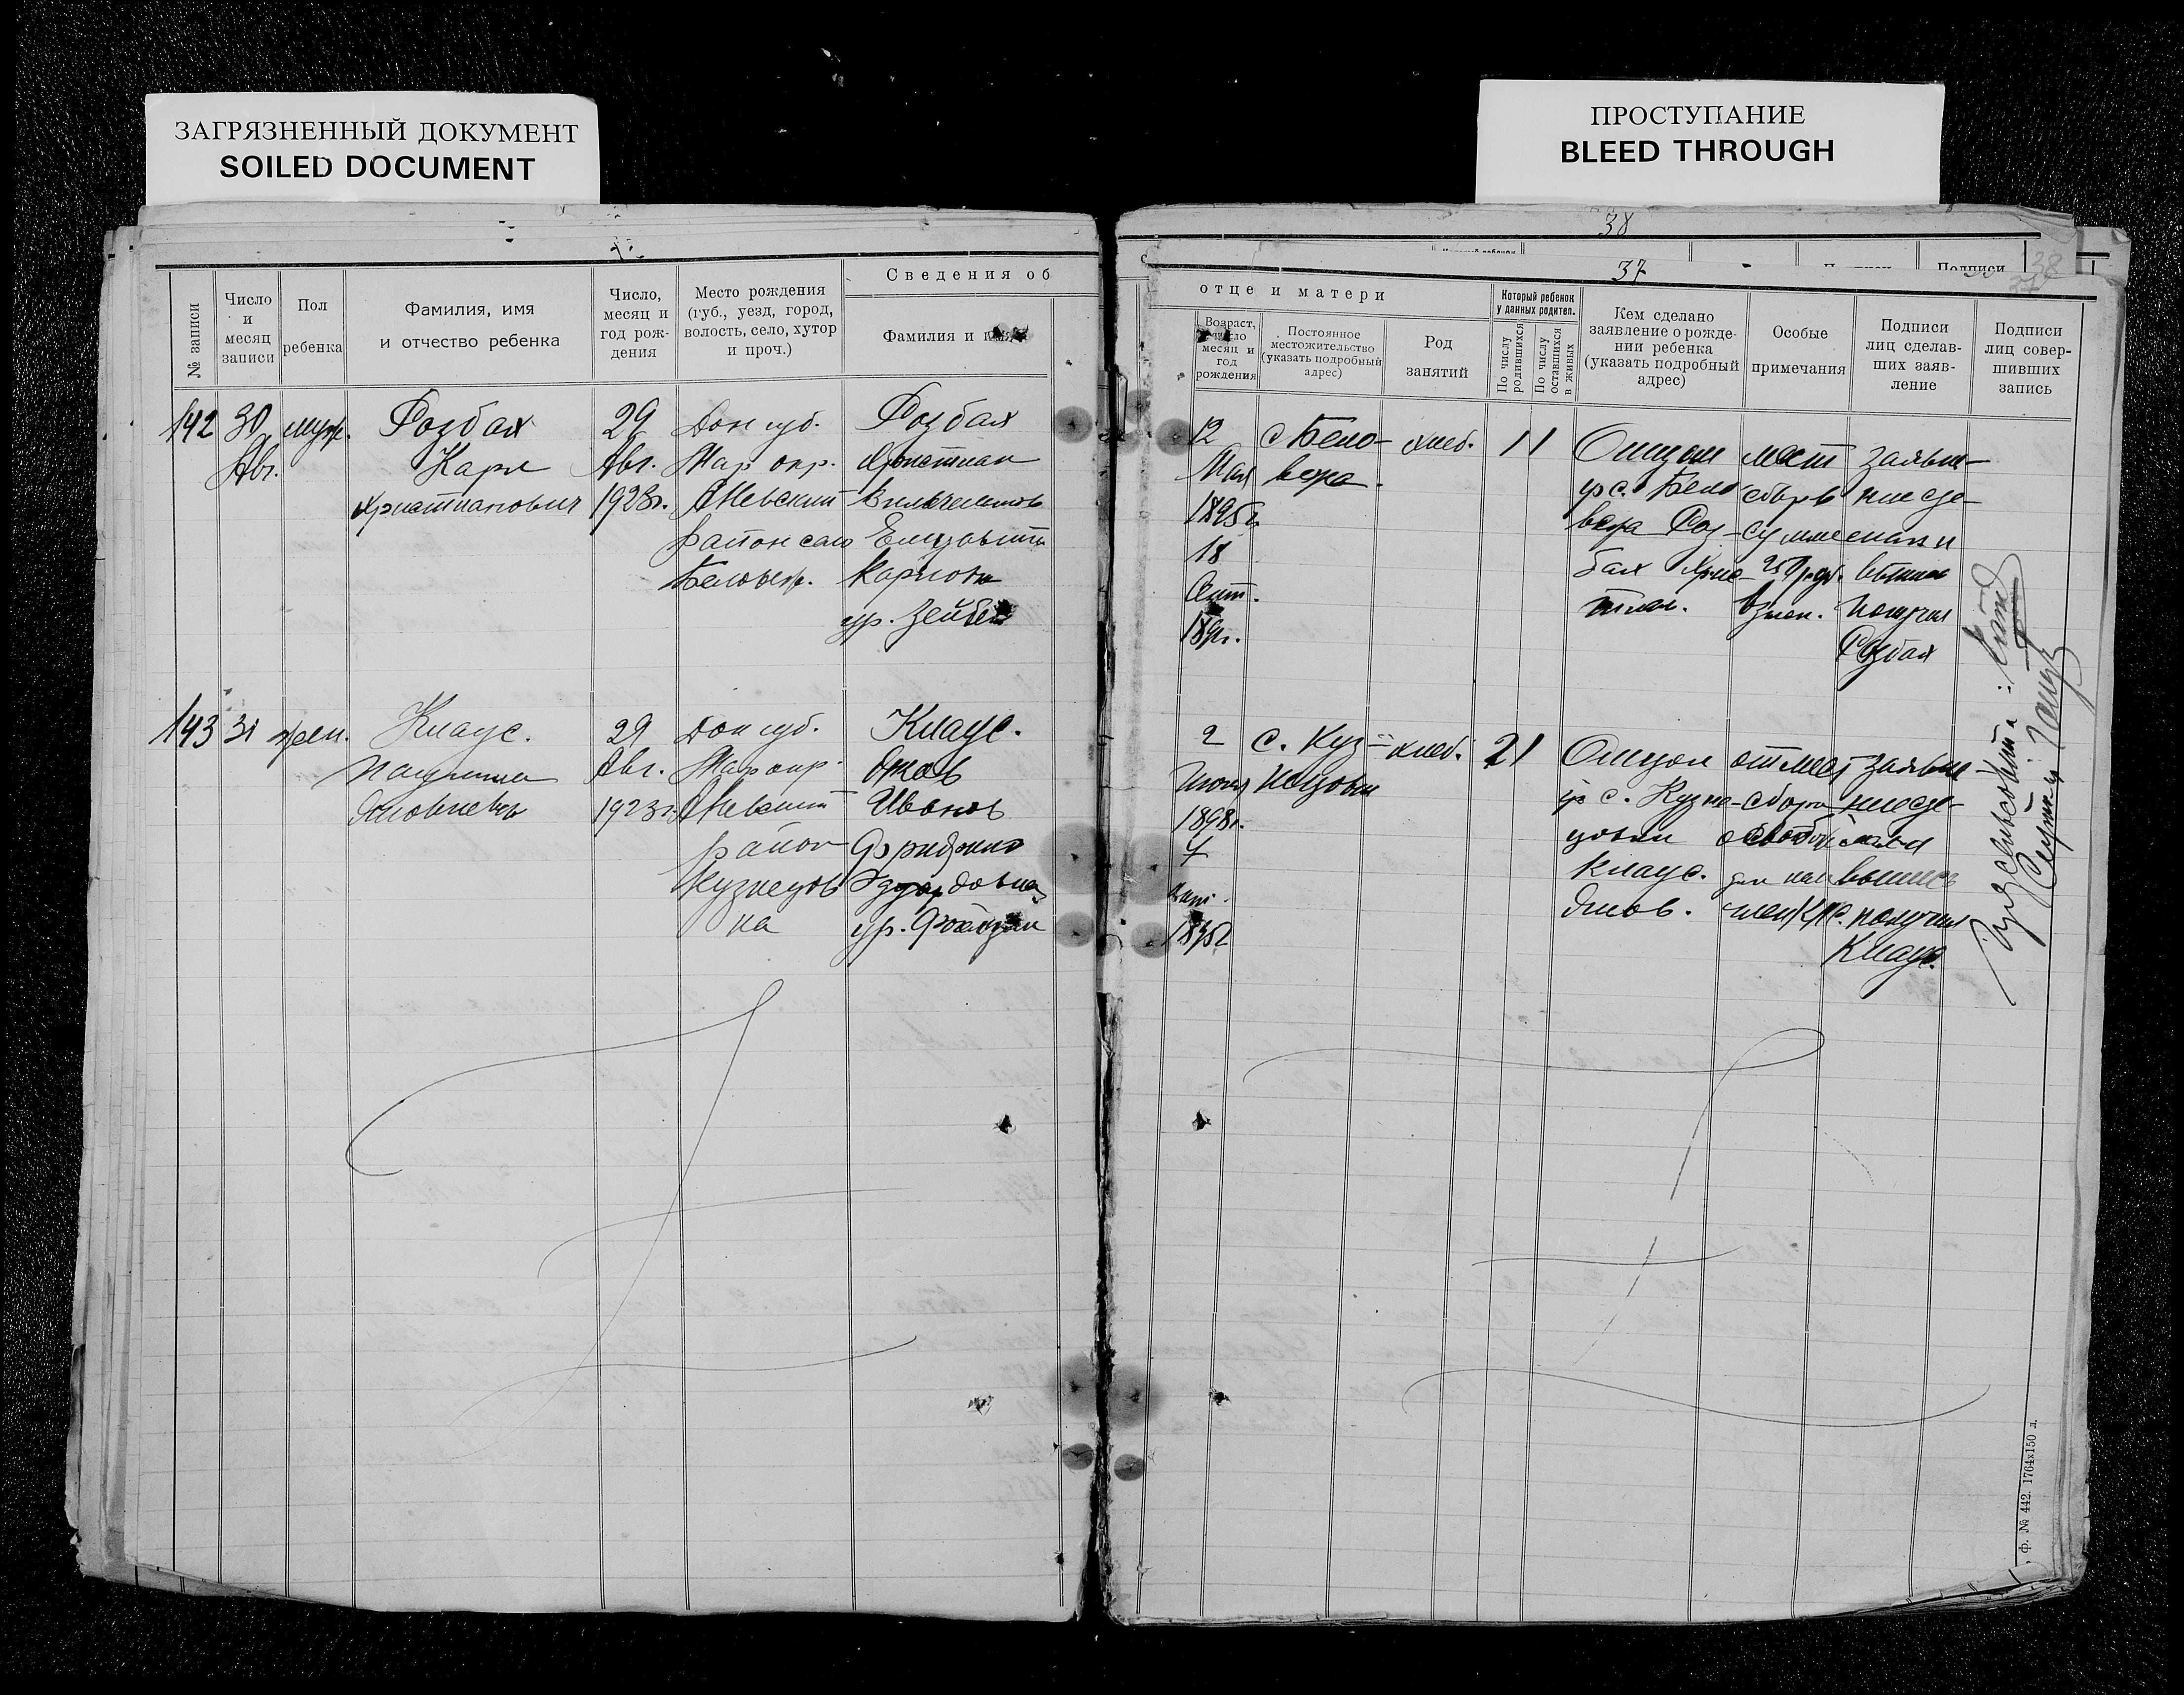 ЗАГРЯЗНЕННЫЙ ДОКУМЕНТ
SOILED DOCUMENT
ПРОСТУПАНИЕ
BLEED THROUGH
38
37
Подписи
38
№ записи
Число и месяц записи
Пол ребенка
Фамилия, имя и отчество ребенка
Число, месяц и год рождения
Место рождения (губ., уезд, город, волость, село, хутор и проч.)
Сведения об отце и матери
Фамилия и
Возраст, число месяц и год рождения
Постоянное местожительство (указать подробный адрес)
Род занятий
Который ребенок у данных родител.
По числу родившихся
По числу оставшихся в живых
Кем сделано заявление о рождении ребенка (указать подробный адрес)
Особые примечания
Подписи лиц сделавших заявление
Подписи лиц совершивших запись
142
30
Авг.
муж.
Розбах
Карл
Христианович
29
Авг.
1923г.
Дон губ.
Мар окр.
АНевский
район село
Розбах
Христиан
Елизавета
Карлов
ур.
12
Мая
1895г.
18
Сент.
с Бело-
вера.
хлеб.
1 1
Отцом
Бело
вера Роз-
бах Хрис-
тиан.
взнос.
заявле-
ние сде-
лал и
получил
Розбах
143
31
жен.
Клаус.
Паулина
Яковлевна
29
Авг.
1923г.
Дон губ.
Мар окр.
АНевский
район
Кузнецов
ка
Клаус.
Яков
Иванов
Эдуардовна
ур.
2
Июня
1898г.
4
с. Куз-
нецовка
хлеб.
2 1
Отцом
с. Кузне-
цовки
Клаус.
Яков.
от мест
сбора
освобожд
как
член К.Н.С.
заявле
ние сде-
лал и
выпись
получил
Клаус.
ф. № 442. 1764х150 л.